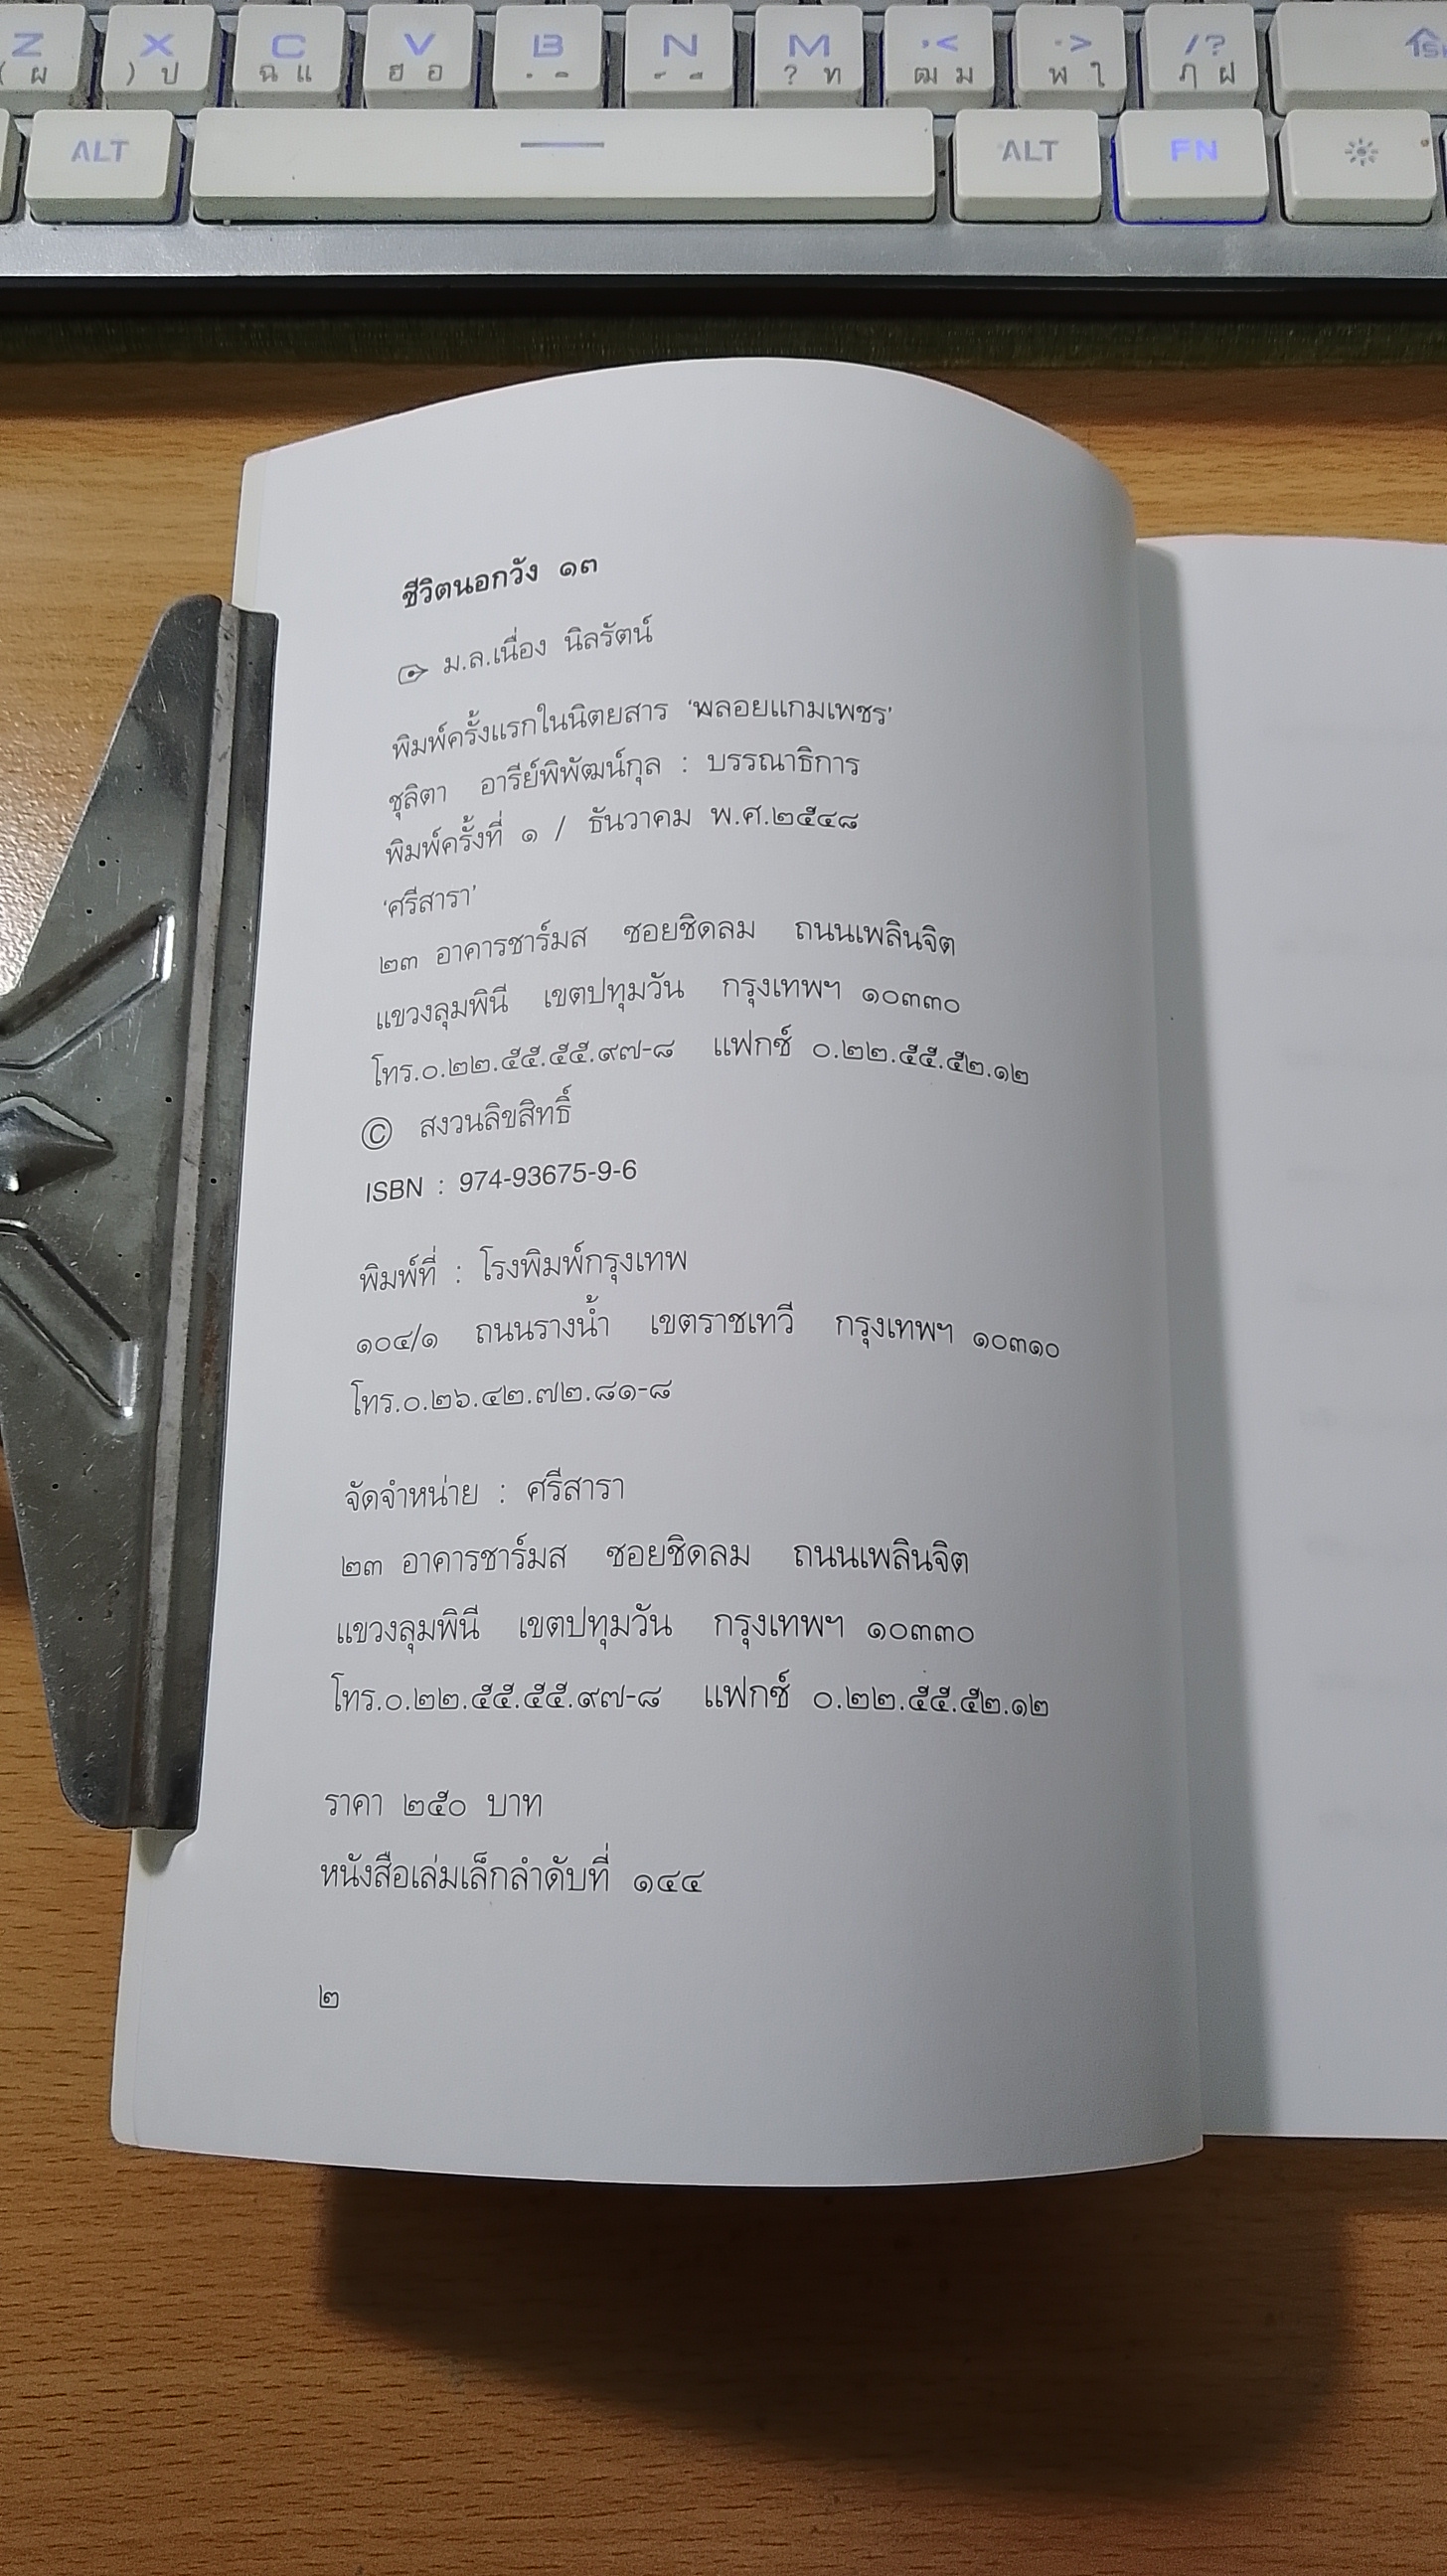 Z X C V B N M ,< .> /?
( ผ ) ป ฉ แ ฮ อ ? ท ฒ ม ฬ ใ ฦ ฝ
ALT ALT FN
ชีวิตนอกวัง ๑๓
ม.ล.เนื่อง นิลรัตน์
พิมพ์ครั้งแรกในนิตยสาร ‘พลอยแกมเพชร’
ชุลิตา อารีย์พิพัฒน์กุล : บรรณาธิการ
พิมพ์ครั้งที่ ๑ / ธันวาคม พ.ศ.๒๕๔๘
‘ศรีสารา’
๒๓ อาคารชาร์มส ซอยชิดลม ถนนเพลินจิต
แขวงลุมพินี เขตปทุมวัน กรุงเทพฯ ๑๐๓๓๐
โทร.๐.๒๒.๕๕.๕๕.๙๗-๘ แฟกซ์ ๐.๒๒.๕๕.๕๒.๑๒
© สงวนลิขสิทธิ์
ISBN : 974-93675-9-6
พิมพ์ที่ : โรงพิมพ์กรุงเทพ
๑๐๔/๑ ถนนรางน้ำ เขตราชเทวี กรุงเทพฯ ๑๐๓๑๐
โทร.๐.๒๖.๔๒.๗๒.๘๑-๘
จัดจำหน่าย : ศรีสารา
๒๓ อาคารชาร์มส ซอยชิดลม ถนนเพลินจิต
แขวงลุมพินี เขตปทุมวัน กรุงเทพฯ ๑๐๓๓๐
โทร.๐.๒๒.๕๕.๕๕.๙๗-๘ แฟกซ์ ๐.๒๒.๕๕.๕๒.๑๒
ราคา ๒๕๐ บาท
หนังสือเล่มเล็กลำดับที่ ๑๔๔
๒